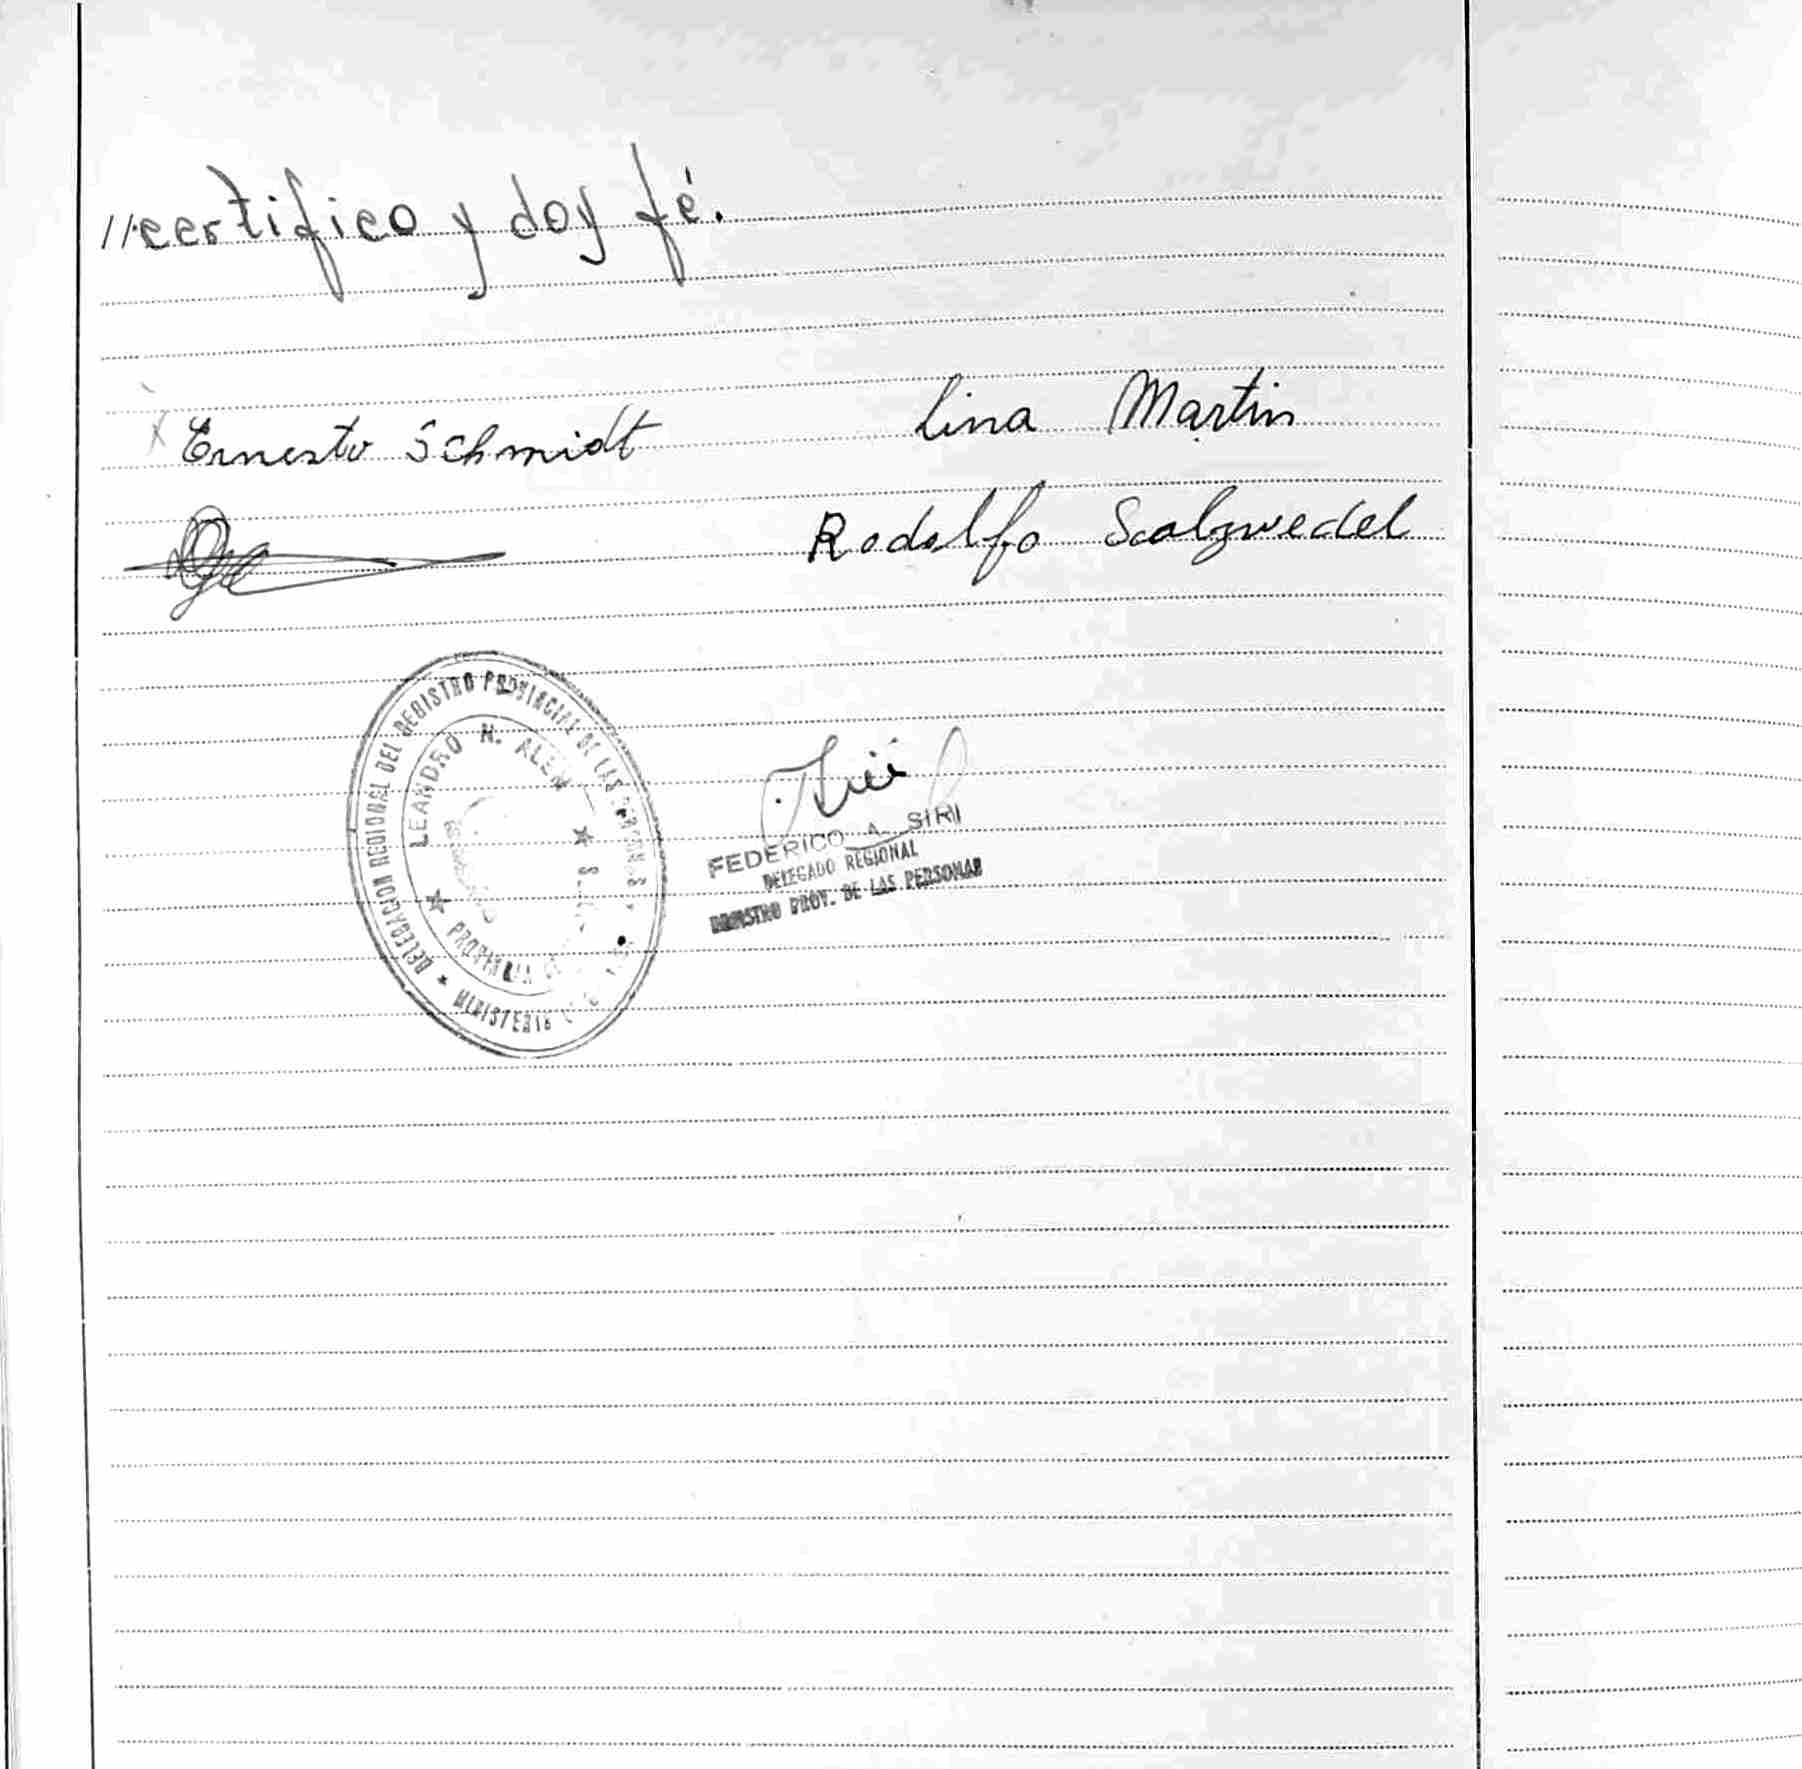 //certifico y doy fé.
Ernesto Schmidt
Lina Martin
Rodolfo Scalzwedel
DELEGACION REGIONAL DEL REGISTRO PROVINCIAL DE LAS PERSONAS
LEANDRO N. ALEM
MINISTERIO
FEDERICO A. SIRI
DELEGADO REGIONAL
REGISTRO PROV. DE LAS PERSONAS